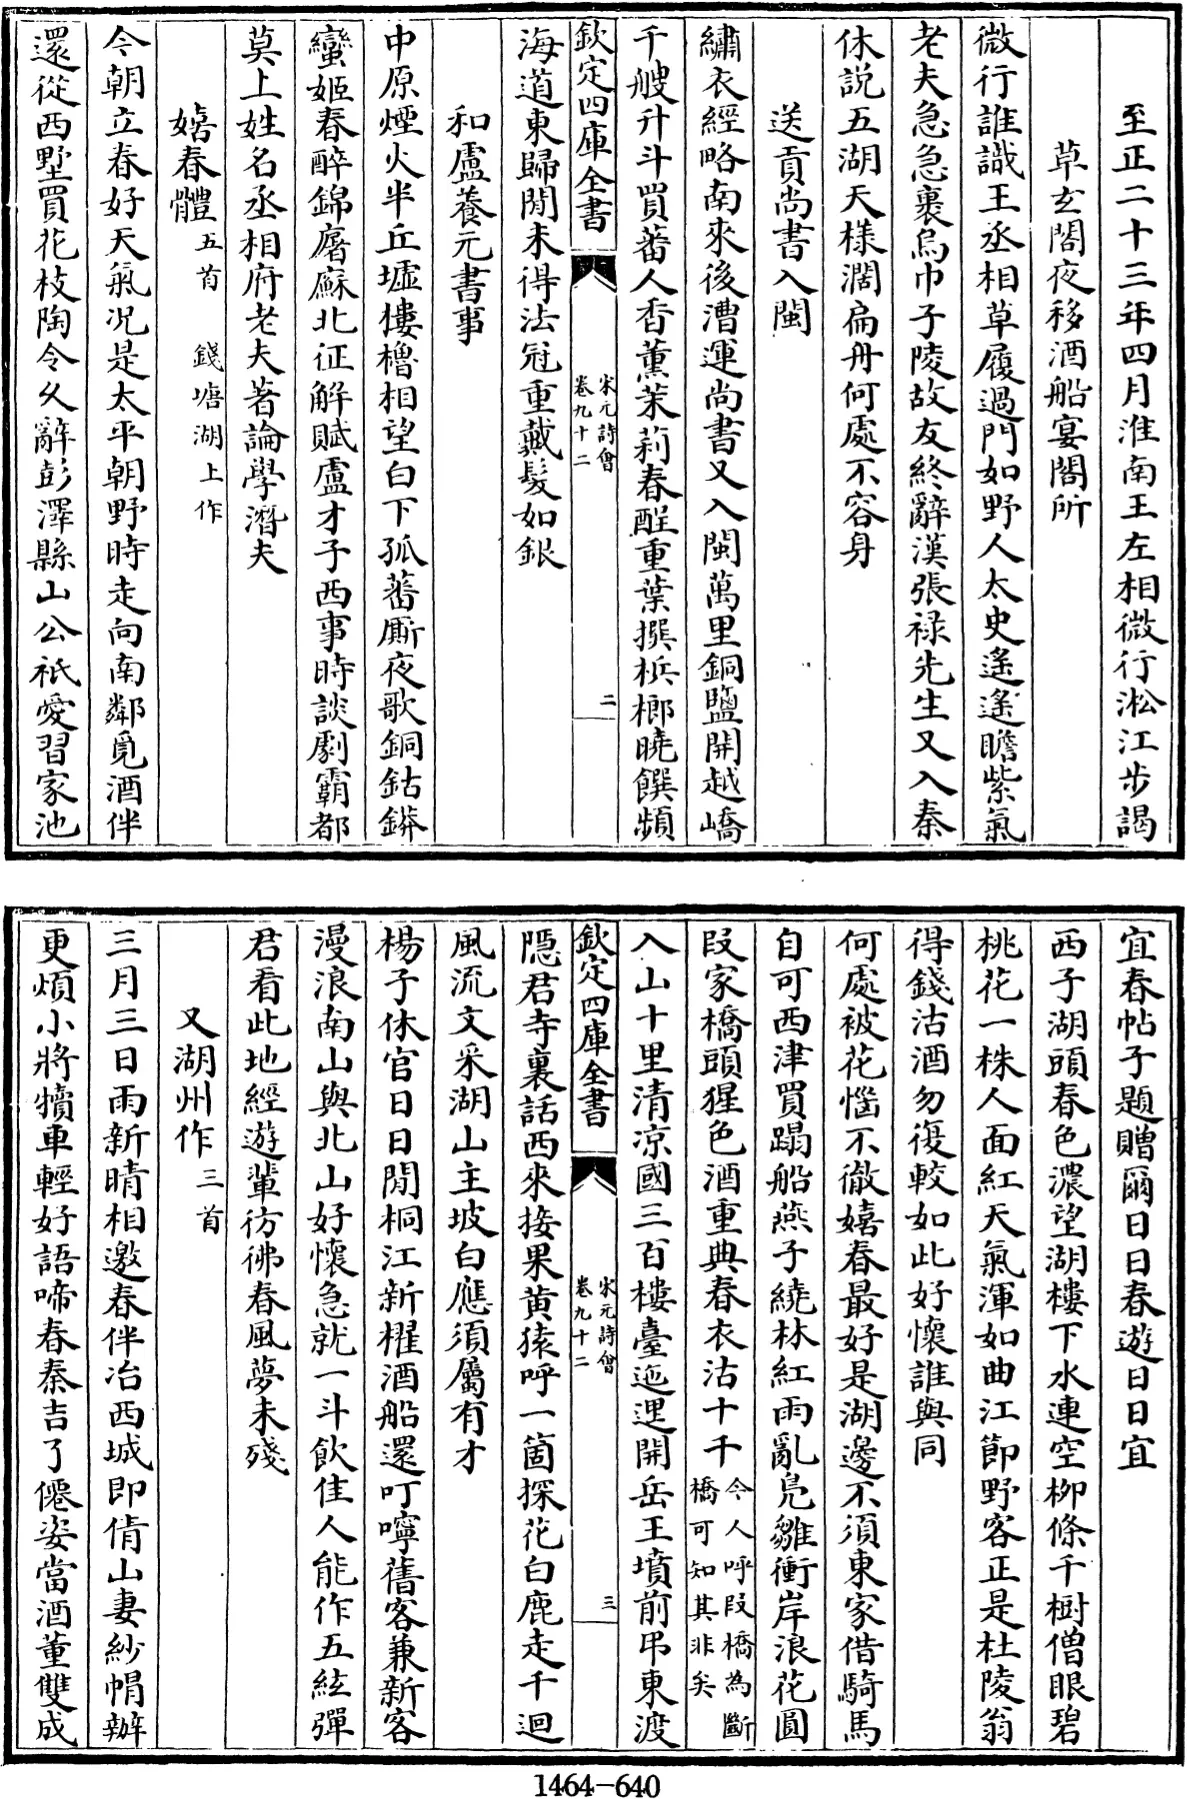 至正二十三年四月淮南王左相微行淞江步謁
草玄閣夜移酒船宴閣所
微行誰識王丞相草履過門如野人太史遙遙瞻紫氣
老夫急急裹烏巾子陵故友終辭漢張禄先生又入秦
休説五湖天様濶扁舟何處不容身
送貢尚書入閩
繡衣經略南來後漕運尚書又入閩萬里銅鹽開越嶠
千艘升斗買蕃人香薰茉莉春酲重葉撰梹榔曉饌頻
欽定四庫全書
宋元詩會
卷九十二
二
海道東歸閒未得法冠重戴髮如銀
和盧養元書事
中原煙火半丘墟樓櫓相望白下孤蕃厮夜歌銅鈷鏻
蠻姬春醉錦屠蘇北征解賦盧才子西事時談劇霸都
莫上姓名丞相府老夫著論學潛夫
嬉春體五首 錢塘湖上作
今朝立春好天氣况是太平朝野時走向南鄰覓酒伴
還從西墅買花枝陶令久辭彭澤縣山公祇愛習家池
宜春帖子題贈爾日日春遊日日宜
西子湖頭春色濃望湖樓下水連空栁條千樹僧眼碧
桃花一株人面紅天氣渾如曲江節野客正是杜陵翁
得錢沽酒勿復較如此好懷誰與同
何處被花惱不徹嬉春最好是湖邊不須東家借騎馬
自可西津買蹋船燕子繞林紅雨亂鳧雛衝岸浪花圓
段家橋頭猩色酒重典春衣沽十千今人呼段橋為斷
橋可知其非矣
入山十里清凉國三百樓臺迤逞開岳王墳前弔東渡
欽定四庫全書
宋元詩會
卷九十二
三
隠君寺裏話西來接果黄猿呼一箇探花白鹿走千迴
風流文采湖山主坡白應須屬有才
楊子休官日日閒桐江新櫂酒船還叮嚀舊客兼新客
漫浪南山與北山好懷急就一斗飲佳人能作五絃彈
君看此地經遊輩彷彿春風夢未殘
又湖州作三首
三月三日雨新晴相邀春伴冶西城即倩山妻紗帽辦
更煩小將犢車輕好語啼春秦吉了僊姿當酒董雙成
1464-640